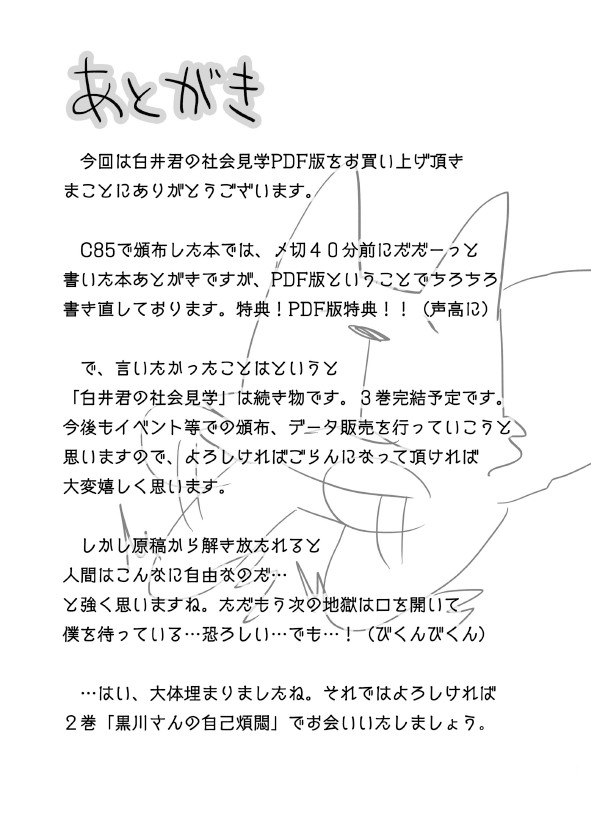 あとがき
今回は白井君の社会見学PDF版をお買い上げ頂き
まことにありがとうございます。
C85で頒布した本では、〆切４０分前にだだーっと
書いた本あとがきですが、PDF版ということでちろちろ
書き直しております。特典！PDF版特典！！（声高に）
で、言いたかったことはというと
「白井君の社会見学」は続き物です。３巻完結予定です。
今後もイベント等での頒布、データ販売を行っていこうと
思いますので、よろしければごらんになって頂ければ
大変嬉しく思います。
しかし原稿から解き放たれると
人間はこんなに自由なのだ…
と強く思いますね。ただもう次の地獄は口を開いて
僕を待っている…恐ろしい…でも…！（びくんびくん）
…はい、大体埋まりましたね。それではよろしければ
２巻「黒川さんの自己煩悶」でお会いいたしましょう。